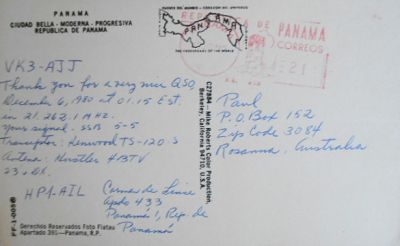 PANAMA
CIUDAD BELLA - MODERNA - PROGRESIVA
REPUBLICA DE PANAMA
PUENTE DEL MUNDO
CORAZON DEL UNIVERSO
PANAMA
THE CROSSROADS OF THE WORLD
REPUBLICA DE PANAMA
CORREOS
VK3-AJJ
Thank you for a very nice QSO,
December 6, 1980 at 01.15 Est.
in 21.262.1 MHz.
Your signal. SSB 5-5
Kenwood TS-120 S
Antena: Hustler 4BTV
73 + DX.
HP1-AIL
Apdo 433
Panamá 1, Rep. de
Panamá
FF-1-0065
Derechos Reservados Foto Flatau
Apartado 391—Panama, R.P.
C27884 - Mike Roberts Color Production
Berkeley, California 94710, U.S.A.
Paul
P.O. Box 152
Zip Code 3084
Rosanna, Australia